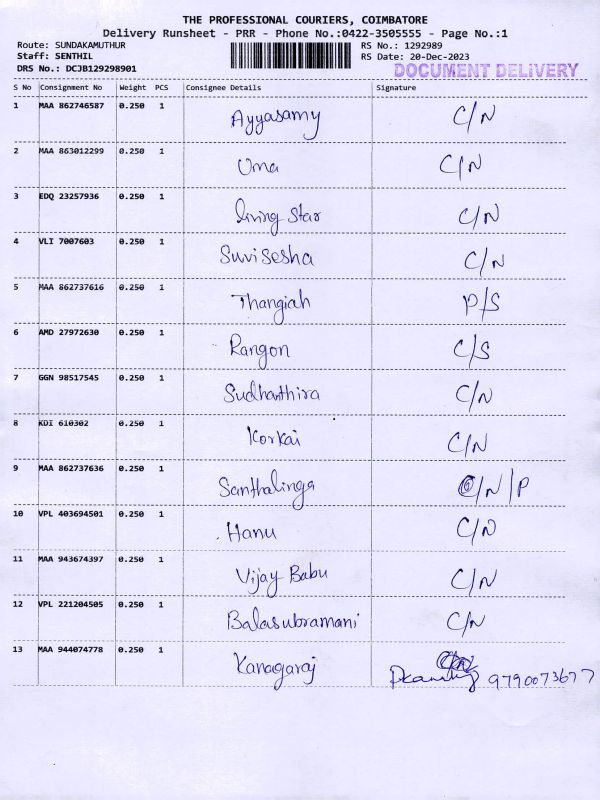 THE PROFESSIONAL COURIERS, COIMBATORE
Delivery Runsheet - PRR - Phone No.:0422-3505555 - Page No.:1
Route: SUNDAKAMUTHUR RS No.: 1292989
Staff: SENTHIL RS Date: 20-Dec-2023
DRS No.: DCJB129298901 DOCUMENT DELIVERY
S No Consignment No Weight PCS Consignee Details Signature
1 MAA 862746587 0.250 1 Ayyasamy C/N
2 MAA 863012299 0.250 1 Uma C/N
3 EDQ 23257936 0.250 1 living star C/N
4 VLI 7007603 0.250 1 Suvisesha C/N
5 MAA 862737616 0.250 1 Thangiah P/S
6 AMD 27972630 0.250 1 Rangon C/S
7 GGN 98517545 0.250 1 Sudhanthira C/N
8 KDI 610302 0.250 1 Korkai C/N
9 MAA 862737636 0.250 1 Santhalinga C/N/P
10 VPL 403694501 0.250 1 Hanu C/N
11 MAA 943674397 0.250 1 Vijay Babu C/N
12 VPL 221204505 0.250 1 Balasubramani C/N
13 MAA 944074778 0.250 1 Kanagaraj 9790073677